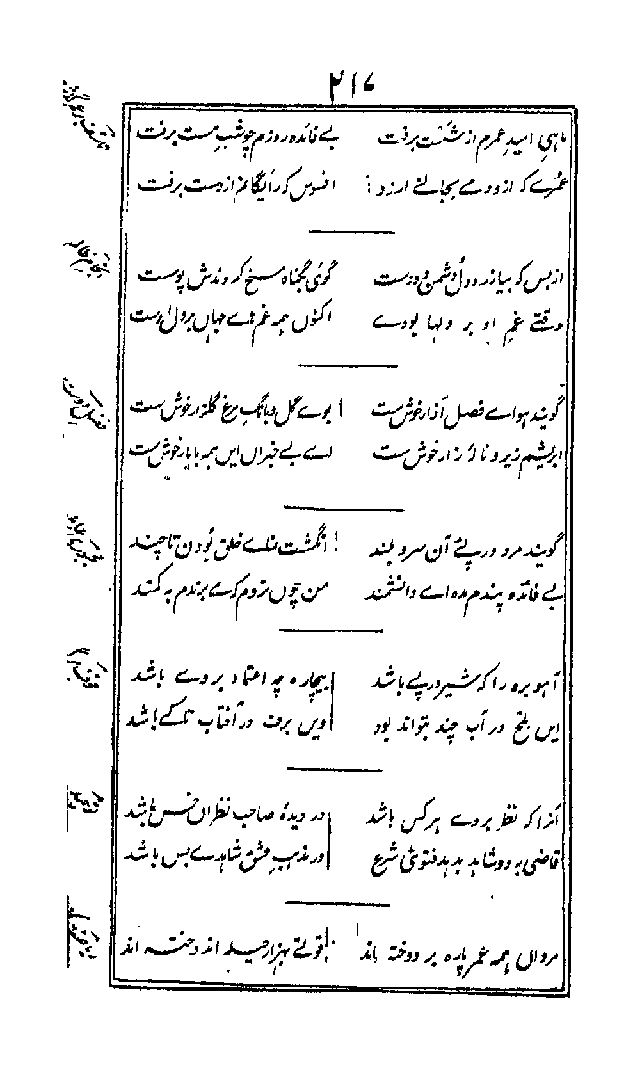 ۲۱۷
ماہیِ امیدِ عمرم از شست برفت بے فائدہ روزم چو شبِ مست برفت
عمرے کہ ازو دمے بجانے ارزد افسوس کہ رایگانم از دست برفت
از بس کہ بیازرد دل دشمن و دوست گوئی بگناہ مسخ کردندش پوست
وقتے غم او بر دلہا بودے اکنوں ہمہ غمہاے جہاں بر دل اوست
گویند ہواے فصل آذار خوش ست بوے گل و بانگ مرغ گلزار خوش ست
ابریشم زیر و نالۂ زار خوش ست اے بے خبراں ایں ہمہ با یار خوش ست
گویند مرو در پئے آن سرو بلند انگشت نماے خلق بودن تا چند
بے فائدہ پندم مدہ اے دانشمند من چوں نروم کہ مے برندم بہ کمند
آہو برہ را کہ شیر در پے باشد بیچارہ چہ اعتماد بر وے باشد
ایں ملخ در آب چند بتواند بود ویں برف در آفتاب تا کے باشد
آنرا کہ نظر بروے ہر کس باشد در دیدۂ صاحب نظراں خس باشد
قاضی بدو شاہد بدہد فتوئ شرع در مذہبِ عشق شاہدے بس باشد
مرداں ہمہ عمر پارہ بر دوختہ اند قوتے بہزار حیلہ اندوختہ اند